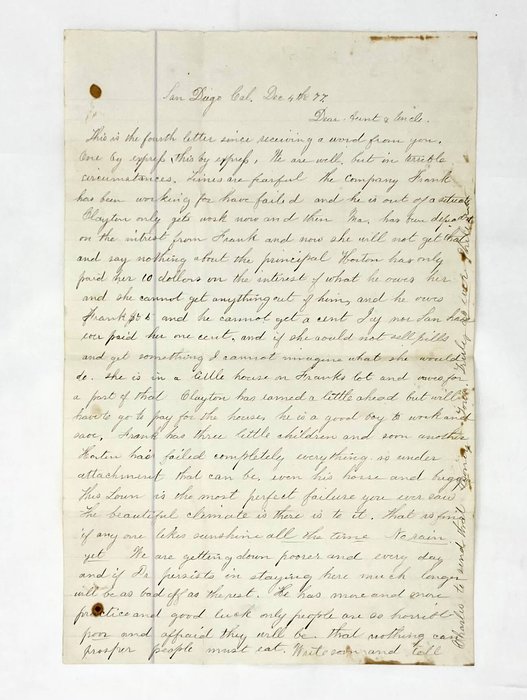 San Diego Cal, Dec 4th 77.
Dear Aunt & Uncle.
This is the fourth letter since receiving a word from you.
One by express, this by express. We are well, but in terrible
circumstances. Times are fearful the Company Frank
has been working for have failed and he is out of a
Clayton only gets work now and then Ma. has
on the intrest from Frank and now she will not get that
and say nothing about the principal Horton has only
paid her 10 dollars on the interest of what he owes her
and she cannot get anything out of him, and he owes
Frank and he cannot get a cent nor have
ever paid her one cent. and if she could not sell pills
and get something I cannot imagine what she would
do. she is in a little house on Franks lot and owes for
a part of that Clayton has earned a little ahead but will
have to go to pay for the house, he is a good boy to work and
save. Frank has three little children and soon another
Horton has failed completely everything is under
attachment that can be, even his horse and buggy
This town is the most perfect failure you ever saw
The beautiful climate is there is to it. That is fine
if any one likes sunshine all the time No rain
yet We are getting down poorer and every day
and if Dr persists in staying here much longer
will be as bad off as the rest. He has more and more
practice and good luck only people are so horribly
poor and affraid they will be. that nothing can
prosper people must eat. Write soon and tell
Charles to send that